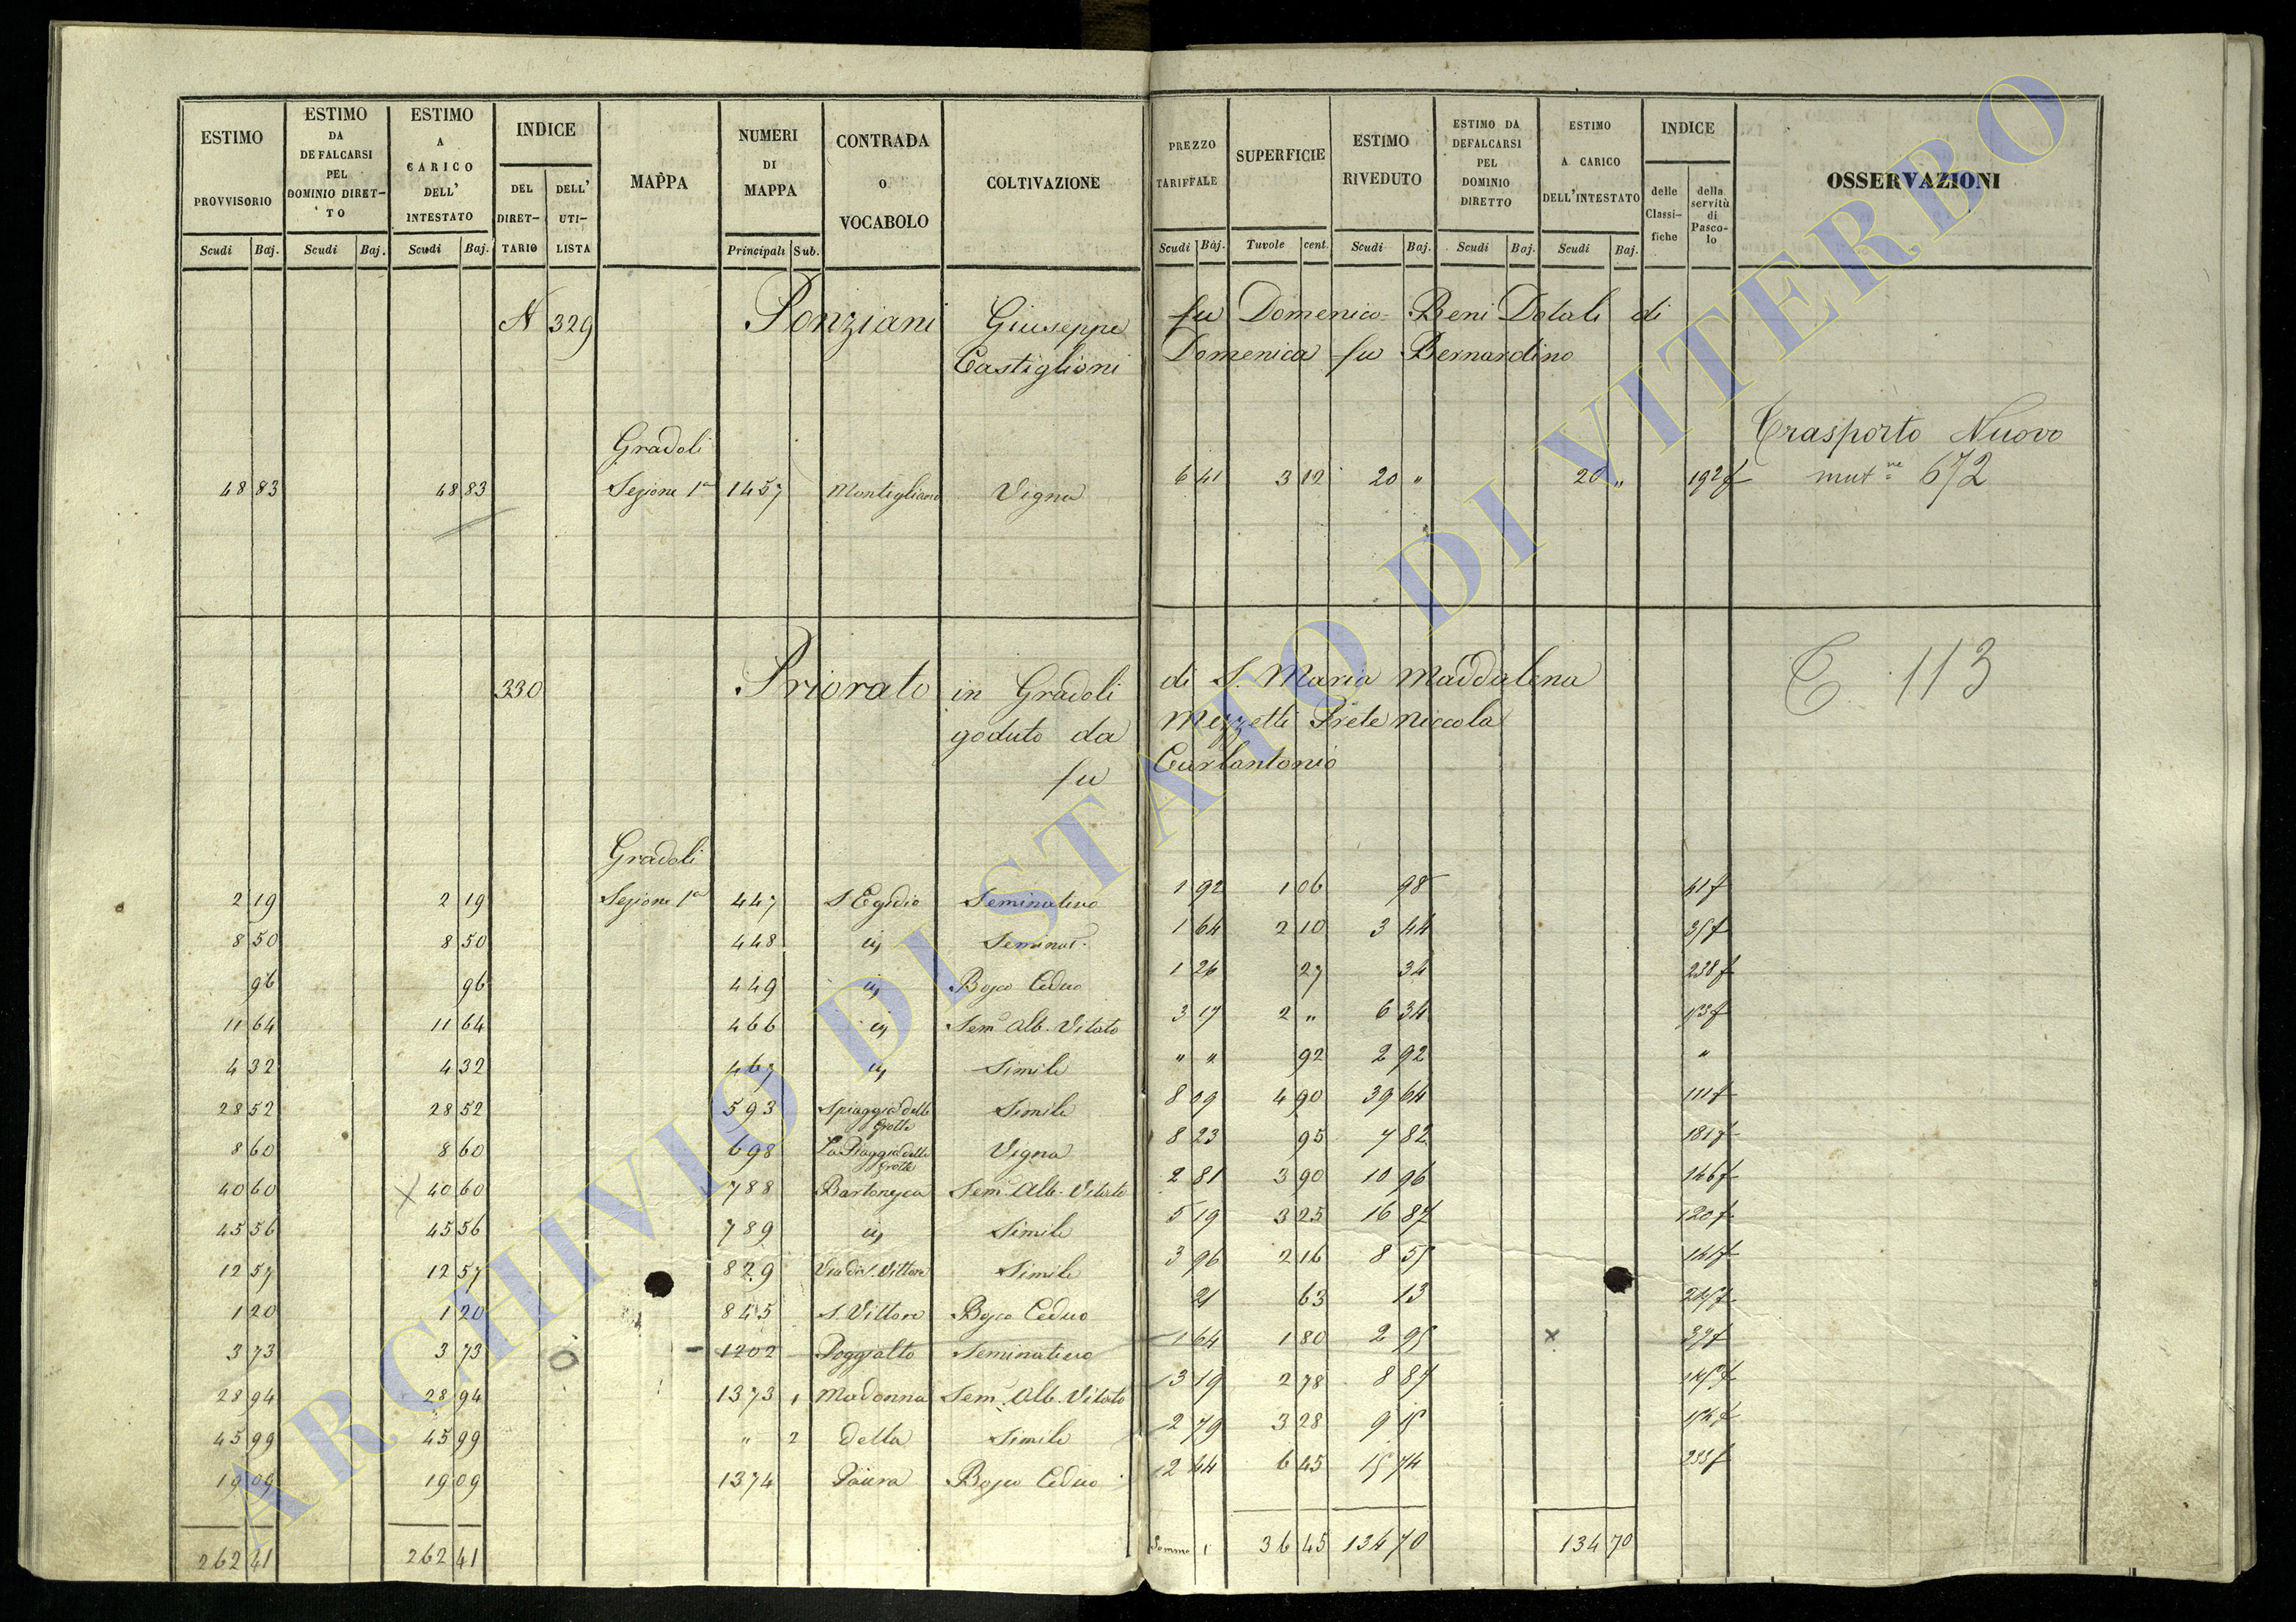 ESTIMO PROVVISORIO Scudi Baj.
ESTIMO DA DEFALCARSI PEL DOMINIO DIRET- TO Scudi Baj.
ESTIMO A CARICO DELL' INTESTATO Scudi Baj.
INDICE DEL DIRET- TARIO DELL' UTI- LISTA
MAPPA
NUMERI DI MAPPA Principali Sub.
CONTRADA O VOCABOLO
COLTIVAZIONE
PREZZO TARIFFALE Scudi Baj.
SUPERFICIE Tavole cent.
ESTIMO RIVEDUTO Scudi Baj.
ESTIMO DA DEFALCARSI PEL DOMINIO DIRETTO Scudi Baj.
ESTIMO A CARICO DELL'INTESTATO Scudi Baj.
INDICE delle Classi- fiche della servitù di Pasco- lo
OSSERVAZIONI
N 329 Ponziani Giuseppe fu Domenico - Beni Dotali di
Castiglioni Domenica fu Bernardino
Gradoli Trasporto Nuovo
48 83 48 83 Sezione 1a 1457 Montigliano Vigna 6 41 3 12 20 " 20 " 192 f mut.ne 672
330 Priorato in Gradoli di S. Maria Maddalena T. 113
goduto da Mezzetti Prete Niccola
fu Carlantonio
Gradoli
2 19 2 19 Sezione 1a 447 S Egidio Seminativo 1 06 98 41 f
8 50 8 50 448 in Seminat. 1 64 2 10 3 44
96 96 449 in Bosco Ceduo 1 26 27 34 238 f
11 64 11 64 466 in Sem. Alb. Vitato 3 17 2 " 6 34 153 f
4 32 4 32 467 in Simile " " 92 2 92 "
28 52 28 52 593 Spiaggia delle Grotte Simile 8 09 4 90 39 64 111 f
8 60 8 60 698 La Piaggia delle Grotte Vigna 8 23 95 7 82 181 f
40 60 40 60 788 Bartonesca Sem. Alb. Vitato 2 81 3 90 10 96 146 f
45 56 45 56 789 in Simile 5 19 3 25 16 87 120 f
12 57 12 57 829 Via di S. Vittore Simile 3 96 2 16 8 55
1 20 1 20 845 S. Vittore Bosco Ceduo 21 63 13
3 73 3 73 1202 Poggialto Seminativo 1 64 1 80 2 95 × 37 f
28 94 28 94 1373 1 Madonna Sem. Alb. Vitato 3 19 2 78 8 87
45 99 45 99 " 2 della Simile 2 79 3 28 9 15
19 09 19 09 1374 Paura Bosco Ceduo 2 44 6 45 15 74
262 41 262 41 Somma 36 45 134 70 134 70
ARCHIVIO DI STATO DI VITERBO